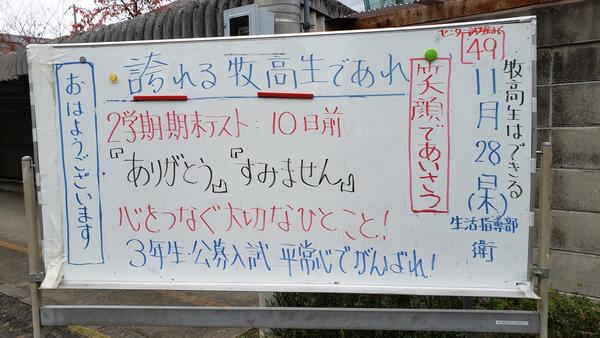 おはようございます
誇れる牧高生であれ
2学期期末テスト:10日前
『ありがとう』『すみません』
心をつなぐ大切なひとこと!
3年生・公募入試 平常心でがんばれ!
笑顔であいさつ
49
11月28日(木)
牧高生はできる
生活指導部
衛